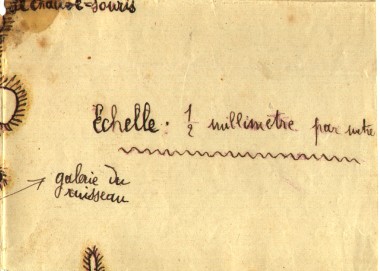 chauve-souris
Echelle. 1/2 millimètre par mètre
galerie du
ruisseau